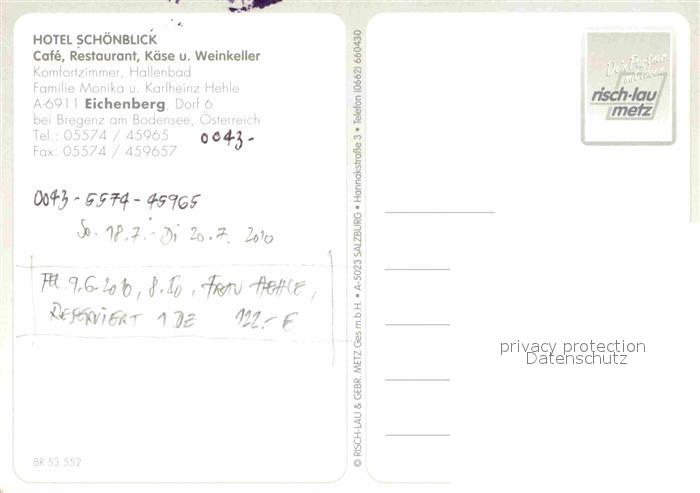 HOTEL SCHÖNBLICK
Café, Restaurant, Käse u. Weinkeller
Komfortzimmer, Hallenbad
Familie Monika u. Karlheinz Hehle
A-6911 Eichenberg, Dorf 6
bei Bregenz am Bodensee, Österreich
Tel.: 05574 / 45965 0043-
Fax: 05574 / 459657
0043-5574-45965
So. 18.7.-Di 20.7. 2010
9.6.2010, 8.50, FRAU HEHLE,
RESERVIERT 1 DZ 122.- €
BR 53.552
© RISCH-LAU & GEBR. METZ Ges.m.b.H. • A-5023 SALZBURG • Hannakstraße 3 • Telefon (0662) 660430
Dein Partner
risch-lau
metz
privacy protection
Datenschutz